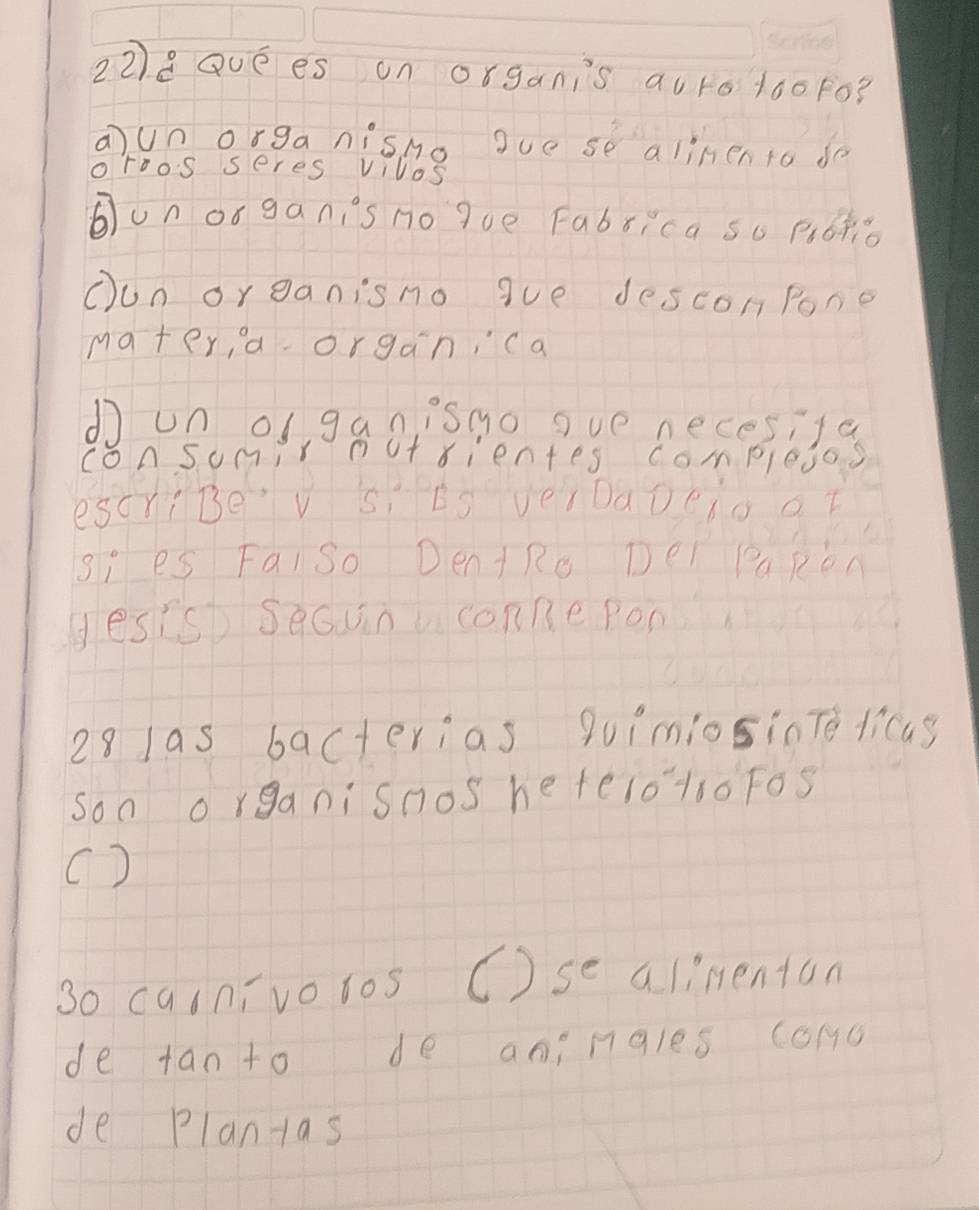 22) ¿ Qué es un organis autotrofo?
a) un organismo que se alimenta de
otros seres vivos
b) un organismo que Fabrica su Propio
c) un organismo que descompone
materia organica
d) un organismo que necesita
consumir nutrientes complejos
escriBe v si Es verDaDero o F
si es Falso DentRo Del PaRen
tesis Segun coRRepon
28 las bacterias quimiosintéticas
son organismos heterotroFos
( )
30 carnívoros ( ) se alimentan
de tanto de animales como
de Plantas